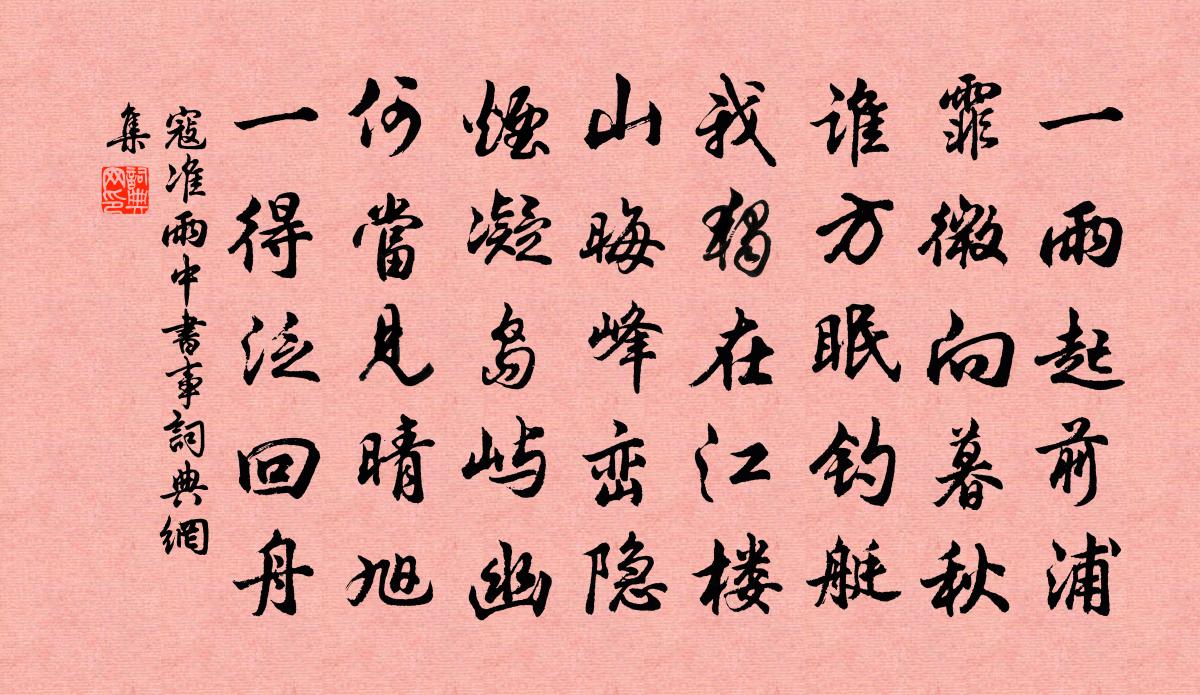 一雨起前浦
霏微向暮秋
谁方眠钓艇
我独在江楼
山晦峰峦隐
煙凝岛屿幽
何當見晴旭
一得泛回舟
寇准雨中書事詞典網
集
詞典网印